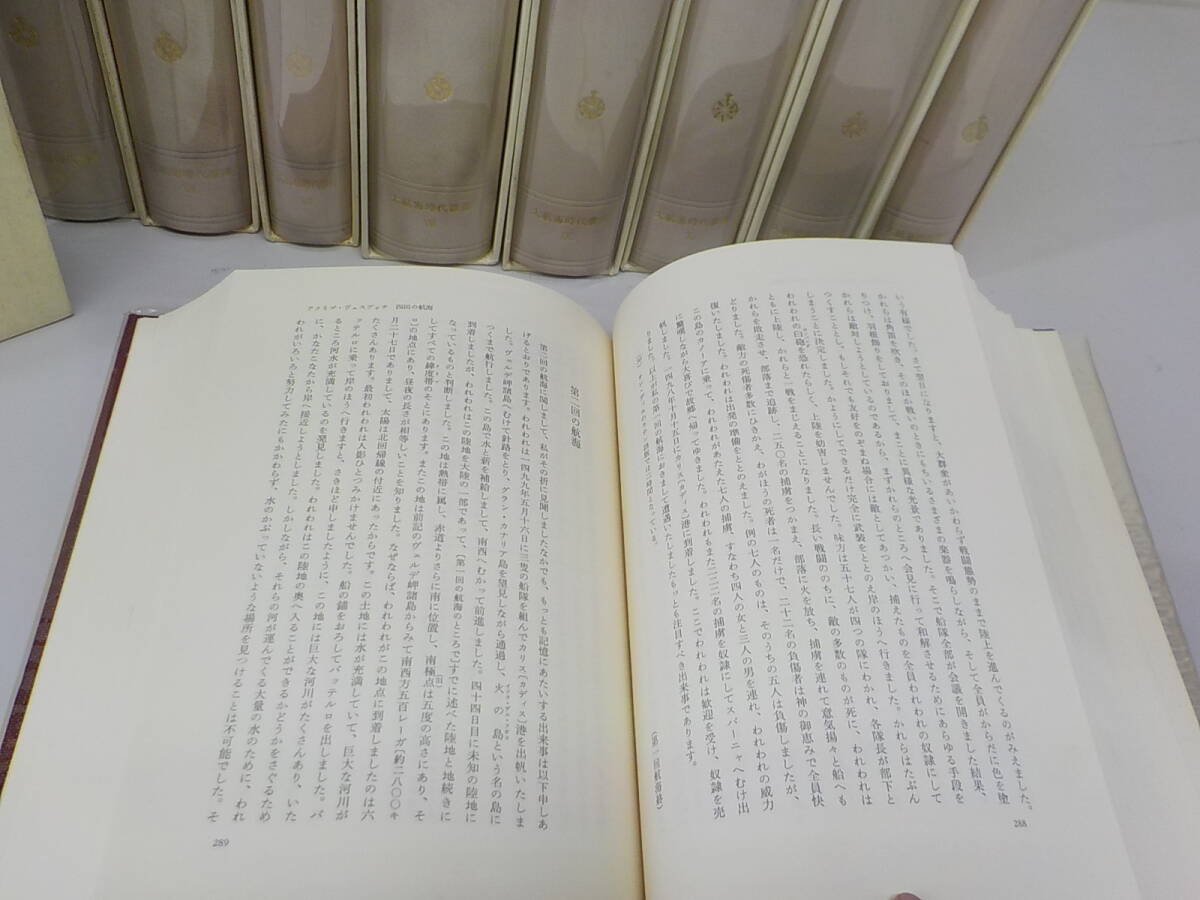 大航海時代叢書
大航海時代叢書
大航海時代叢書
大航海時代叢書
大航海時代叢書
いう有様でした。さて翌日になりますと、大群衆があいかわらず戦闘態勢のままで陸上を進んでくるのがみえました。
かれらは角笛を吹き、そのほか戦いのときにもちいるさまざまの楽器を鳴らしながら、そして全員がからだに色を塗
りつけ、羽根飾りをしておりまして、まことに異様な光景でありました。そこで船隊全部が会議を開きました結果、
かれらは敵対しようとしているのであるから、まずかれらのところへ会見に行って和解させるためにあらゆる手段を
つくすこととし、もしそれでも友好をのぞまぬ場合には敵としてあつかい、捕えたものを全員われわれの奴隷にして
しまうことに決定しました。かようにしてできるだけ完全に武装をととのえ岸のほうへ行きました。かれらはたぶん
われわれの臼砲を恐れたらしく、上陸を妨害しませんでした。味方は五十七人が四つの隊にわかれ、各隊長が部下と
ともに上陸し、かれらと一戦をまじえることになりました。長い戦闘ののちに、敵の多数のものが死に、われわれは
かれらを敗走させ、部落まで追跡し、二五〇名の捕虜をつかまえ、部落に火を放ち、捕虜を連れて意気揚々と船へも
どりました。敵方の死傷者多数にひきかえ、わがほうの死者は一名だけで、二十二名の負傷者は神の御恵みで全員快
復いたしました。われわれは出発の準備をととのえました。例の七人のものは、そのうちの五人は負傷しましたが、
この島のカノーアに乗って、われわれがあたえた七人の捕虜、すなわち四人の女と三人の男を連れ、われわれの威力
に驚嘆しながら大喜びで故郷へ帰ってゆきました。われわれもまた二二二名の捕虜を奴隷にしてスパーニャへむけ出
帆しました。一四九八年十月十五日にカリス〔カディス〕港に到着しました。ここでわれわれは歓迎を受け、奴隷を売
却しました。以上が私の第一回の航海におきまして遭遇いたしましたもっとも注目すべき出来事であります。
〔第一回航海終〕
288
アメリゴ・ヴェスプッチ 四回の航海
第二回の航海
第二回の航海に関しまして、私がその折に見聞しましたなかでも、もっとも記憶にあたいする出来事は以下申しあ
げるとおりであります。われわれは一四九九年五月十六日に三隻の船隊を組んでカリス〔カディス〕港を出帆いたしま
した。ヴェルデ岬諸島へむけて針路をとり、グラン・カナリア島を望見しながら通過し、火の島という名の島に
つくまで航行しました。この島で水と薪を補給しまして、南西へむかって前進しました。四十四日目に未知の陸地に
到着しましたが、われわれはこの陸地を大陸の一部であって、〔第一回の航海のところで〕すでに述べた陸地と地続きに
なっているものと判断しました。この地は熱帯に属し、赤道よりさらに南に位置し、南極点は五度の高さにあり、そ
してすべての緯度帯のそとにあります。またこの地は前記のヴェルデ岬諸島からみて南西方五百レーガ〔約二八〇〇キ
ロ〕の地点にあり、昼夜の長さが相等しいことを知りました。なぜならば、われわれがこの地点に到着しましたのは六
月二十七日でありまして、太陽は北回帰線の付近にあったからです。この土地には水が充満していて、巨大な河川が
たくさんあります。最初われわれは人影ひとつみかけませんでした。船の錨をおろしてバッテルロを出しました。バ
ッテルロに乗って岸のほうへ行きますと、さきほど申しましたように、この地には巨大な河川がたくさんあり、いた
るところ河水が充満しているのを発見しました。われわれはこの陸地の奥へ入ることができるかどうかをさぐるため
に、かなたこなたから岸へ接近しようとしました。しかしながら、それらの河が運んでくる大量の水のために、われ
われがいろいろと努力してみたにもかかわらず、水のかぶっていないような場所を見つけることは不可能でした。そ
289